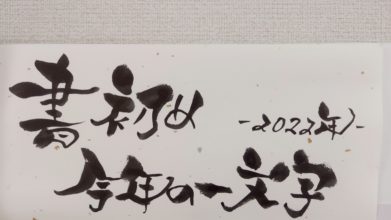 書初め -2022年-
今年の一文字